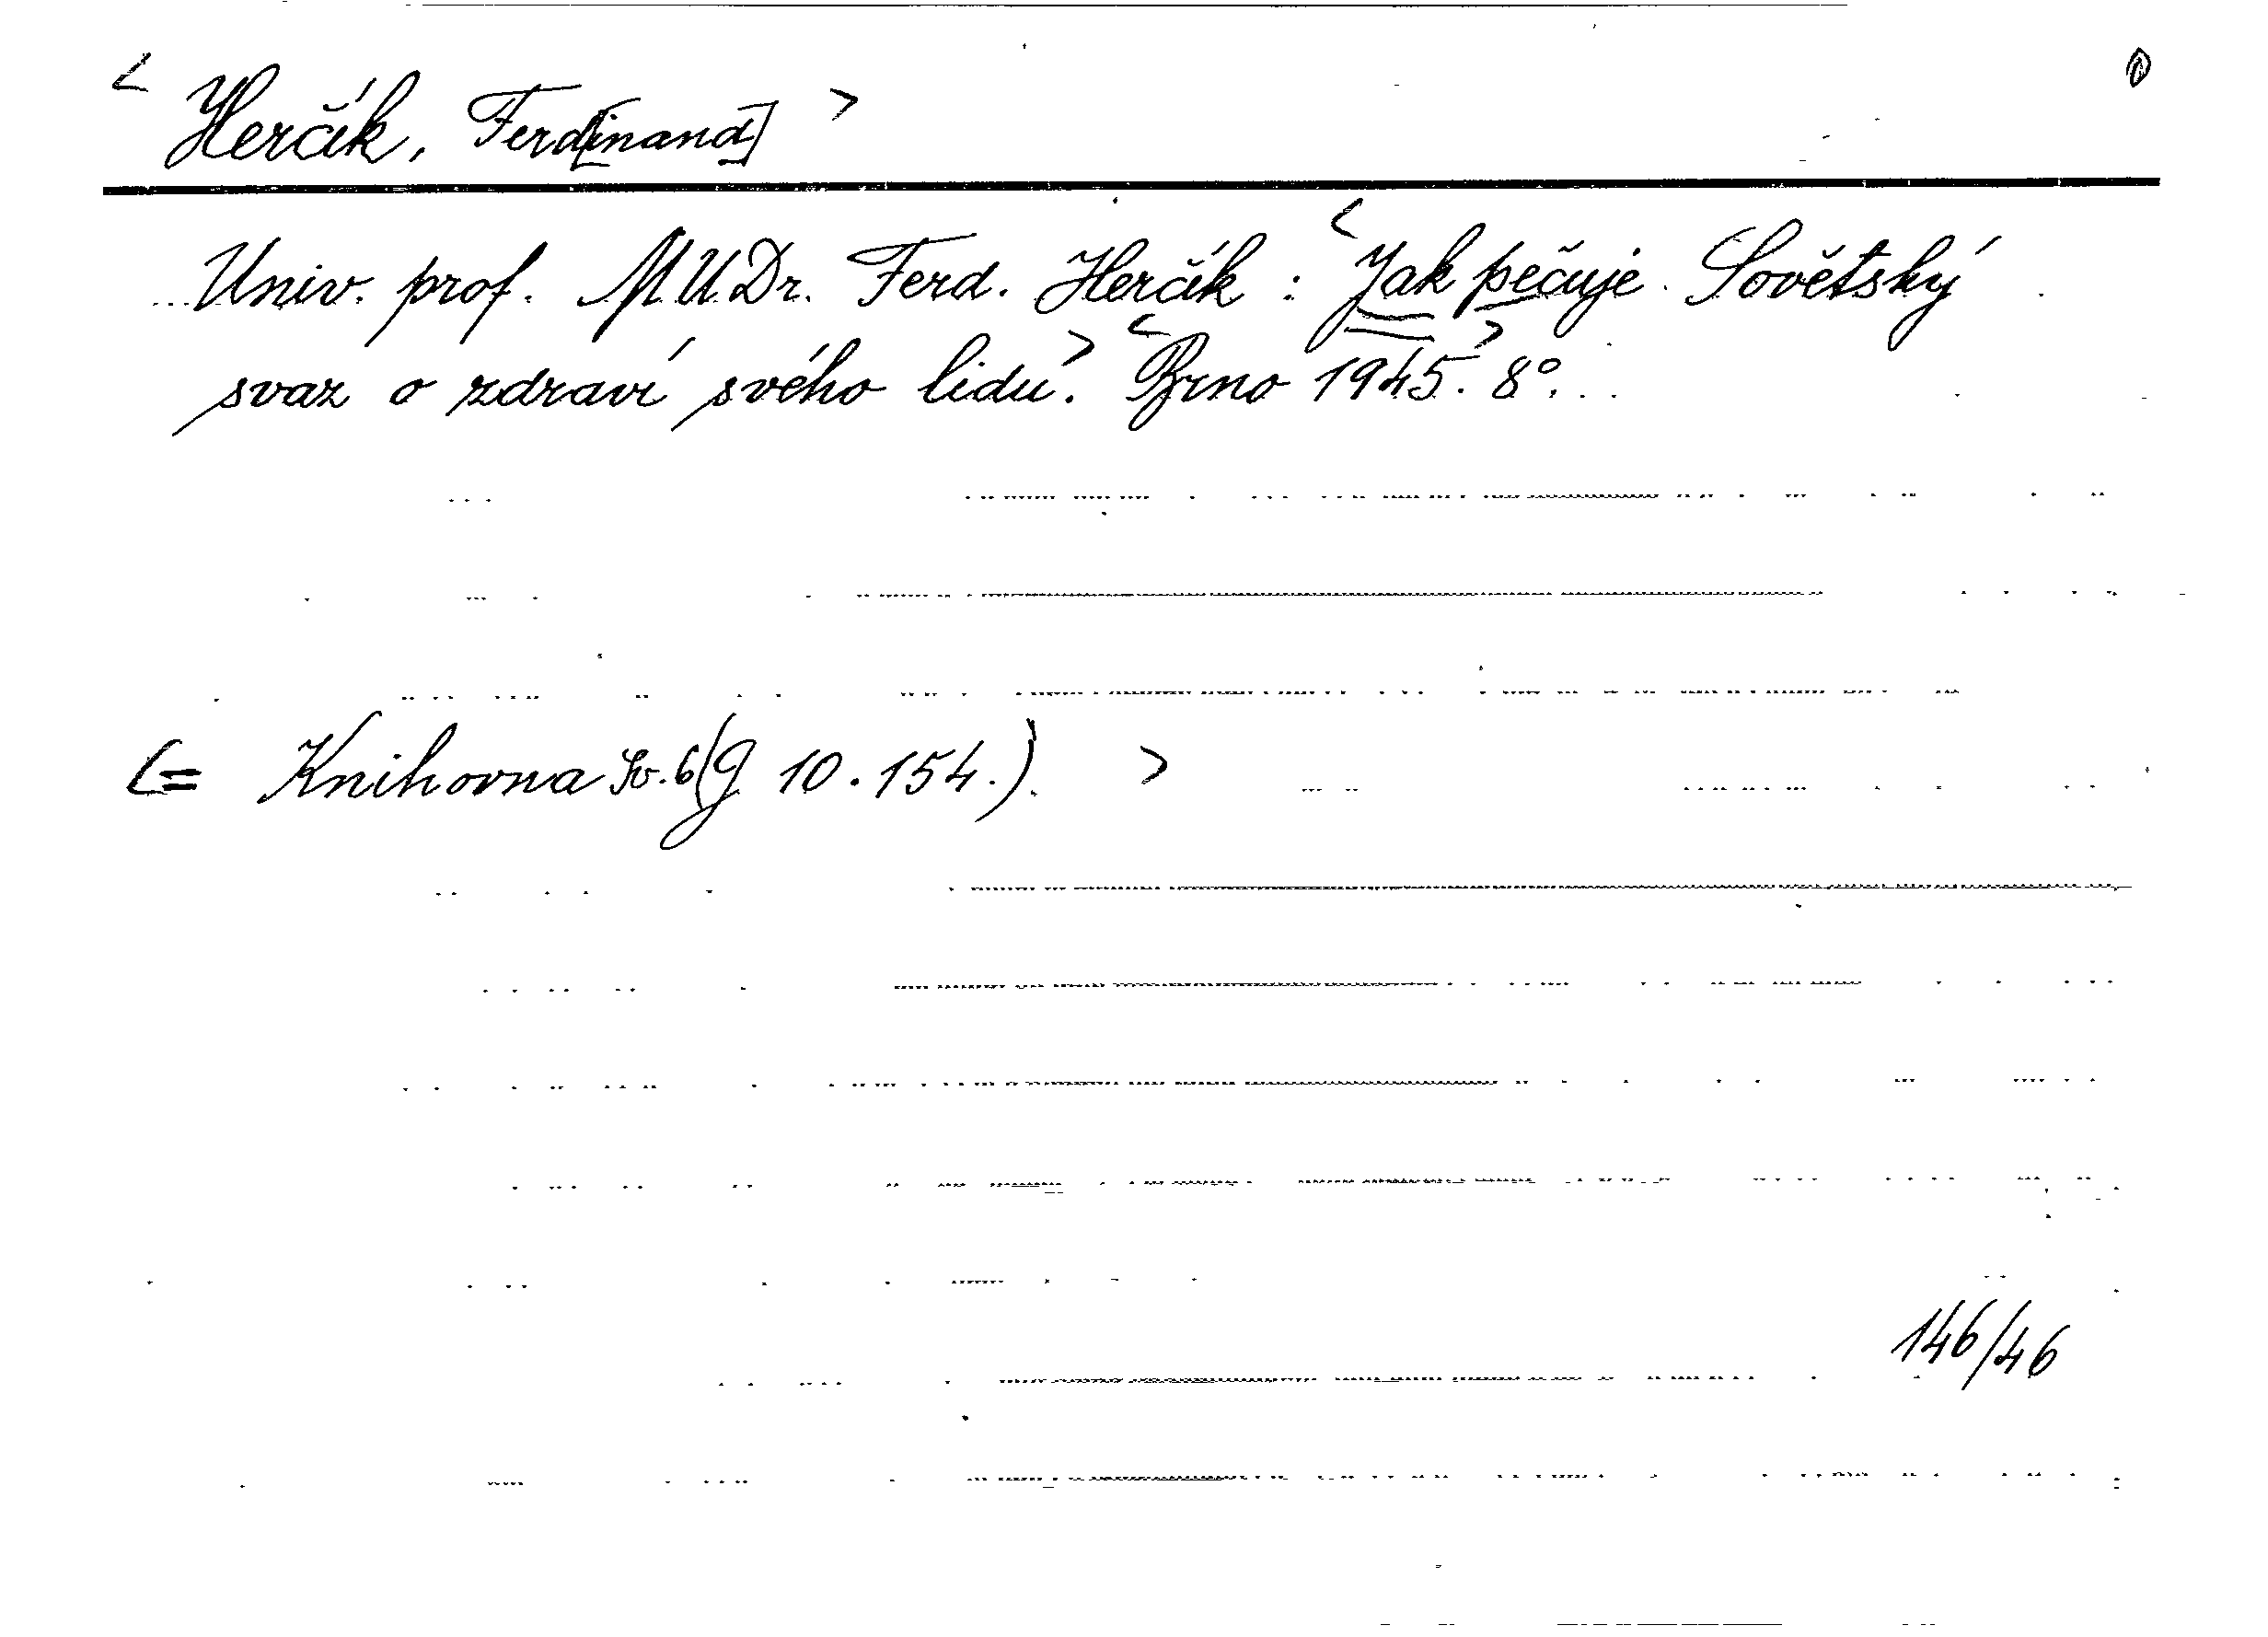 < Herčík, Ferd[inand] >
Univ. prof. MUDr. Ferd. Herčík : <Jak pečuje Sovětský
svaz o zdraví svého lidu>. <Brno 1945.> 8°.
(= Knihovna Sv. 6 (g 10.154.). >
146/46